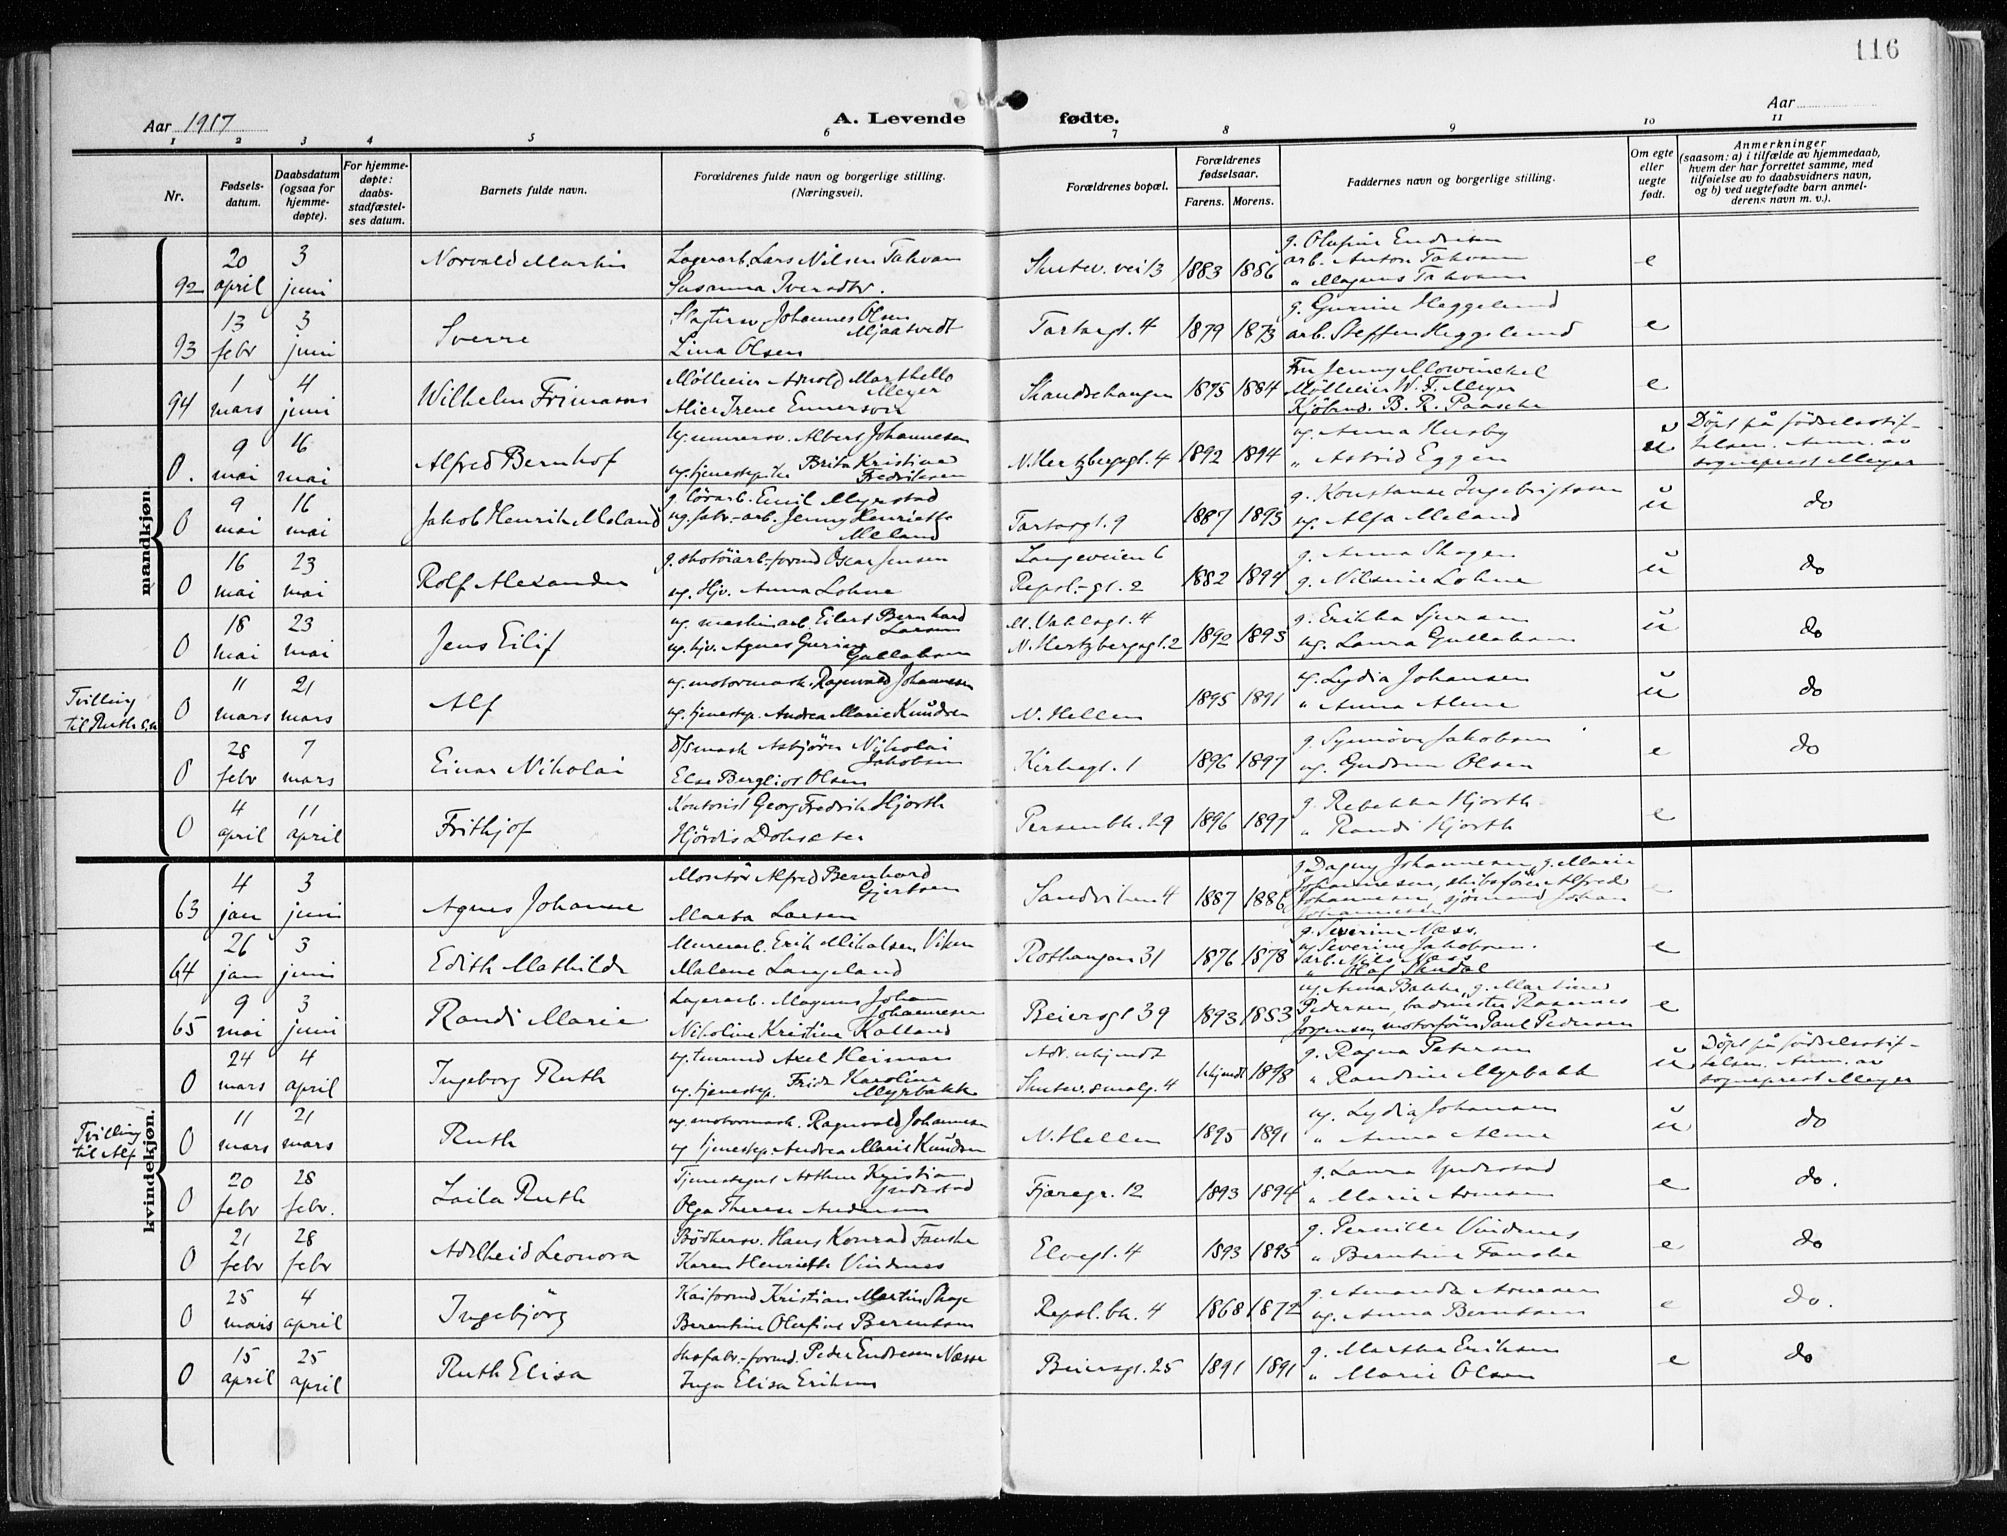 116
Aar 1917
A. Levende fødte.
Aar
1 2 3 4 5 6 7 8 9 10 11
Nr.
Fødsels-
datum.
Daabsdatum
(ogsaa for
hjemme-
døpte).
For hjemme-
døpte:
daabs-
stadfæstel-
ses datum.
Barnets fulde navn.
Forældrenes fulde navn og borgerlige stilling.
(Næringsvei).
Forældrenes bopæl.
Forældrenes
fødselsaar.
Farens. Morens.
Faddernes navn og borgerlige stilling.
Om egte
eller
uegte
født.
Anmerkninger
(saasom: a) i tilfælde av hjemmedaab,
hvem der har forrettet samme, med
tilføielse av to daabsvidners navn,
og b) ved uegtefødte barn anmel-
derens navn m. v.).
mandkjøn.
92 20 april 3 juni Norvald Martin
Lagerarb. Lars Nilsen Takvam
Susanna Iversdtr.
Skutev. vei 13 1883 1886
g. Olufine Endresen
arb. Anton Takvam
" Magnus Takvam
e
93 13 febr 3 juni Sverre
Slagtersv Johannes Olsen
Mjaatvedt
Lina Olsen
Tartargt. 4 1879 1873
g. Gurine Heggelund
arb. Steffen Heggelund
e
94 1 mars 4 juni Wilhelm Frimann
Mølleeier Arnold Marthello
Meyer
Alice Irene Ennersen
Skandsehaugen 1875 1884
Fru Jenny Mowinckel
Mølleeier W. F. Meyer
Kjøbmd. B. R. Paasche
e
0. 9 mai 16 mai Alfred Bernhof
ug. murersv. Albert Johannesen
ug. tjenestep. Brita Kristine
Fredriksen
N. Hertzbergsgt. 4 1892 1894
ug. Anna Husby
" Astrid Eggen
u
Döpt på fødselsstif-
telsen. Anm. av
sogneprest Meyer
0 9 mai 16 mai Jakob Henrik Meland
g. lörarb. Emil Myrstad
ug. fabr.-arb. Jenny Henriette
Meland
Tartargt. 9 1887 1895
g. Konstanse Ingebrigtsen
ug. Alfa Meland
u do
0 16 mai 23 mai Rolf Alexander
g. skotöiarb-formd Oscar Jensen
ug. Hjv. Anna Lohne
Langeveien 6
Repsl.-gt. 2
1882 1894
g. Anna Skagen
g. Nilsine Lohne
u do
0 18 mai 23 mai Jens Eilif
ug. maskinarb. Eilert Bernhard
Larsen
ug. hjv. Agnes Gurine
Gullaksen
M. Vahlsgt. 4
N. Hertzbergsgt. 2
1892 1895
g. Erikka Sjursen
ug. Laura Gullaksen
u do
Tvilling
til Ruth
0 11 mars 21 mars Alf
ug. motormask. Ragnvald Johannesen
ug. tjenestep. Andrea Marie Knudsen
N. Hellen 1895 1891
ug. Lydia Johansen
" Anna Alme
u do
0 28 febr 7 mars Einar Nikolai
D/Smask Asbjörn Nikolai
Jakobsen
Else Bergliot Olsen
Kirkegt. 1 1896 1897
g. Synnöve Jakobsen
ug. Gudrun Olsen
e do
0 4 april 11 april Frithjof
Kontorist Georg Fredrik Hjorth
Hjördis
Persenbk. 29 1896 1897
g. Rebekka Hjorth
" Randi Hjorth
e
kvindekjøn.
63 4 jan 3 juni Agnes Johanne
Montör Alfred Bernhard
Gjertsen
Marta Larsen
Sandviken 4 1887 1886
g. Dagny Johannesen, g. Marie
Johannesen, skibsförer Alfred
Johannesen, sjömand Johan
Johannesen
e
64 26 jan 3 juni Edith Mathilde
Murerarb. Erik Mikalsen Viken
Malene Langeland
Rothaugen 31 1876 1878
g. Severine Næss.
ug Severine Jakobsen.
arb. Nils Næss
" Olaf
e
65 9 mai 3 juni Randi Marie
Lagerarb. Magnus Johan
Johannesen
Nikoline Kristine Kalland
Beiersgt 39 1893 1883
ug. Anna Bakke, g. Martine
Pedersen, badmester Rasmus
Jörgensen, motorförer Paul Pedersen
e
0 24 mars 4 april Ingeborg Ruth
ug. Axel Heiman
ug. tjenestep. Frida Karoline
Myrbakk
Adr. ukjendt
Skutev. smalg. 4
ukjendt 1898
g. Ragna Petersen
" Randine Myrbakk
u
Döpt på födselsstif-
telsen. Anm. av
sogneprest Meyer
Tvilling
til Alf
0 11 mars 21 mars Ruth
ug. motormask. Ragnvald Johannesen
ug tjenestep. Andrea Marie Knudsen
N. Hellen 1895 1891
ug. Lydia Johansen
" Anna Alme
u do
0 20 febr 28 febr. Laila Ruth
Tjenestegut Arthur Kristian
Yndestad
Olga Therese Andersen
Fjæregr. 12 1893 1894
g. Laura Yndestad
" Marie Arnesen
e do.
0 21 febr 28 febr Adelheid Leonora
Bödkersv. Hans Konrad Fanske
Karen Henriette Vindenes
Elvegt. 4 1893 1895
g. Pernille Vindenes
" Berntine Fanske
e do
0 25 mars 4 april Ingebjörg
Kaiformd Kristian Martin Skage
Berentine Olufine Berentsen
Repsl. bk. 4 1868 1872
g. Amanda Arnesen
ug. Anna Berntsen
e do.
0 15 april 25 april Ruth Elisa
Skofabr.-formd. Peder Endresen Næsse
Inga Elisa Eriksen
Beiersgt. 25 1891 1891
g. Martha Eriksen
" Marie Olsen
e do